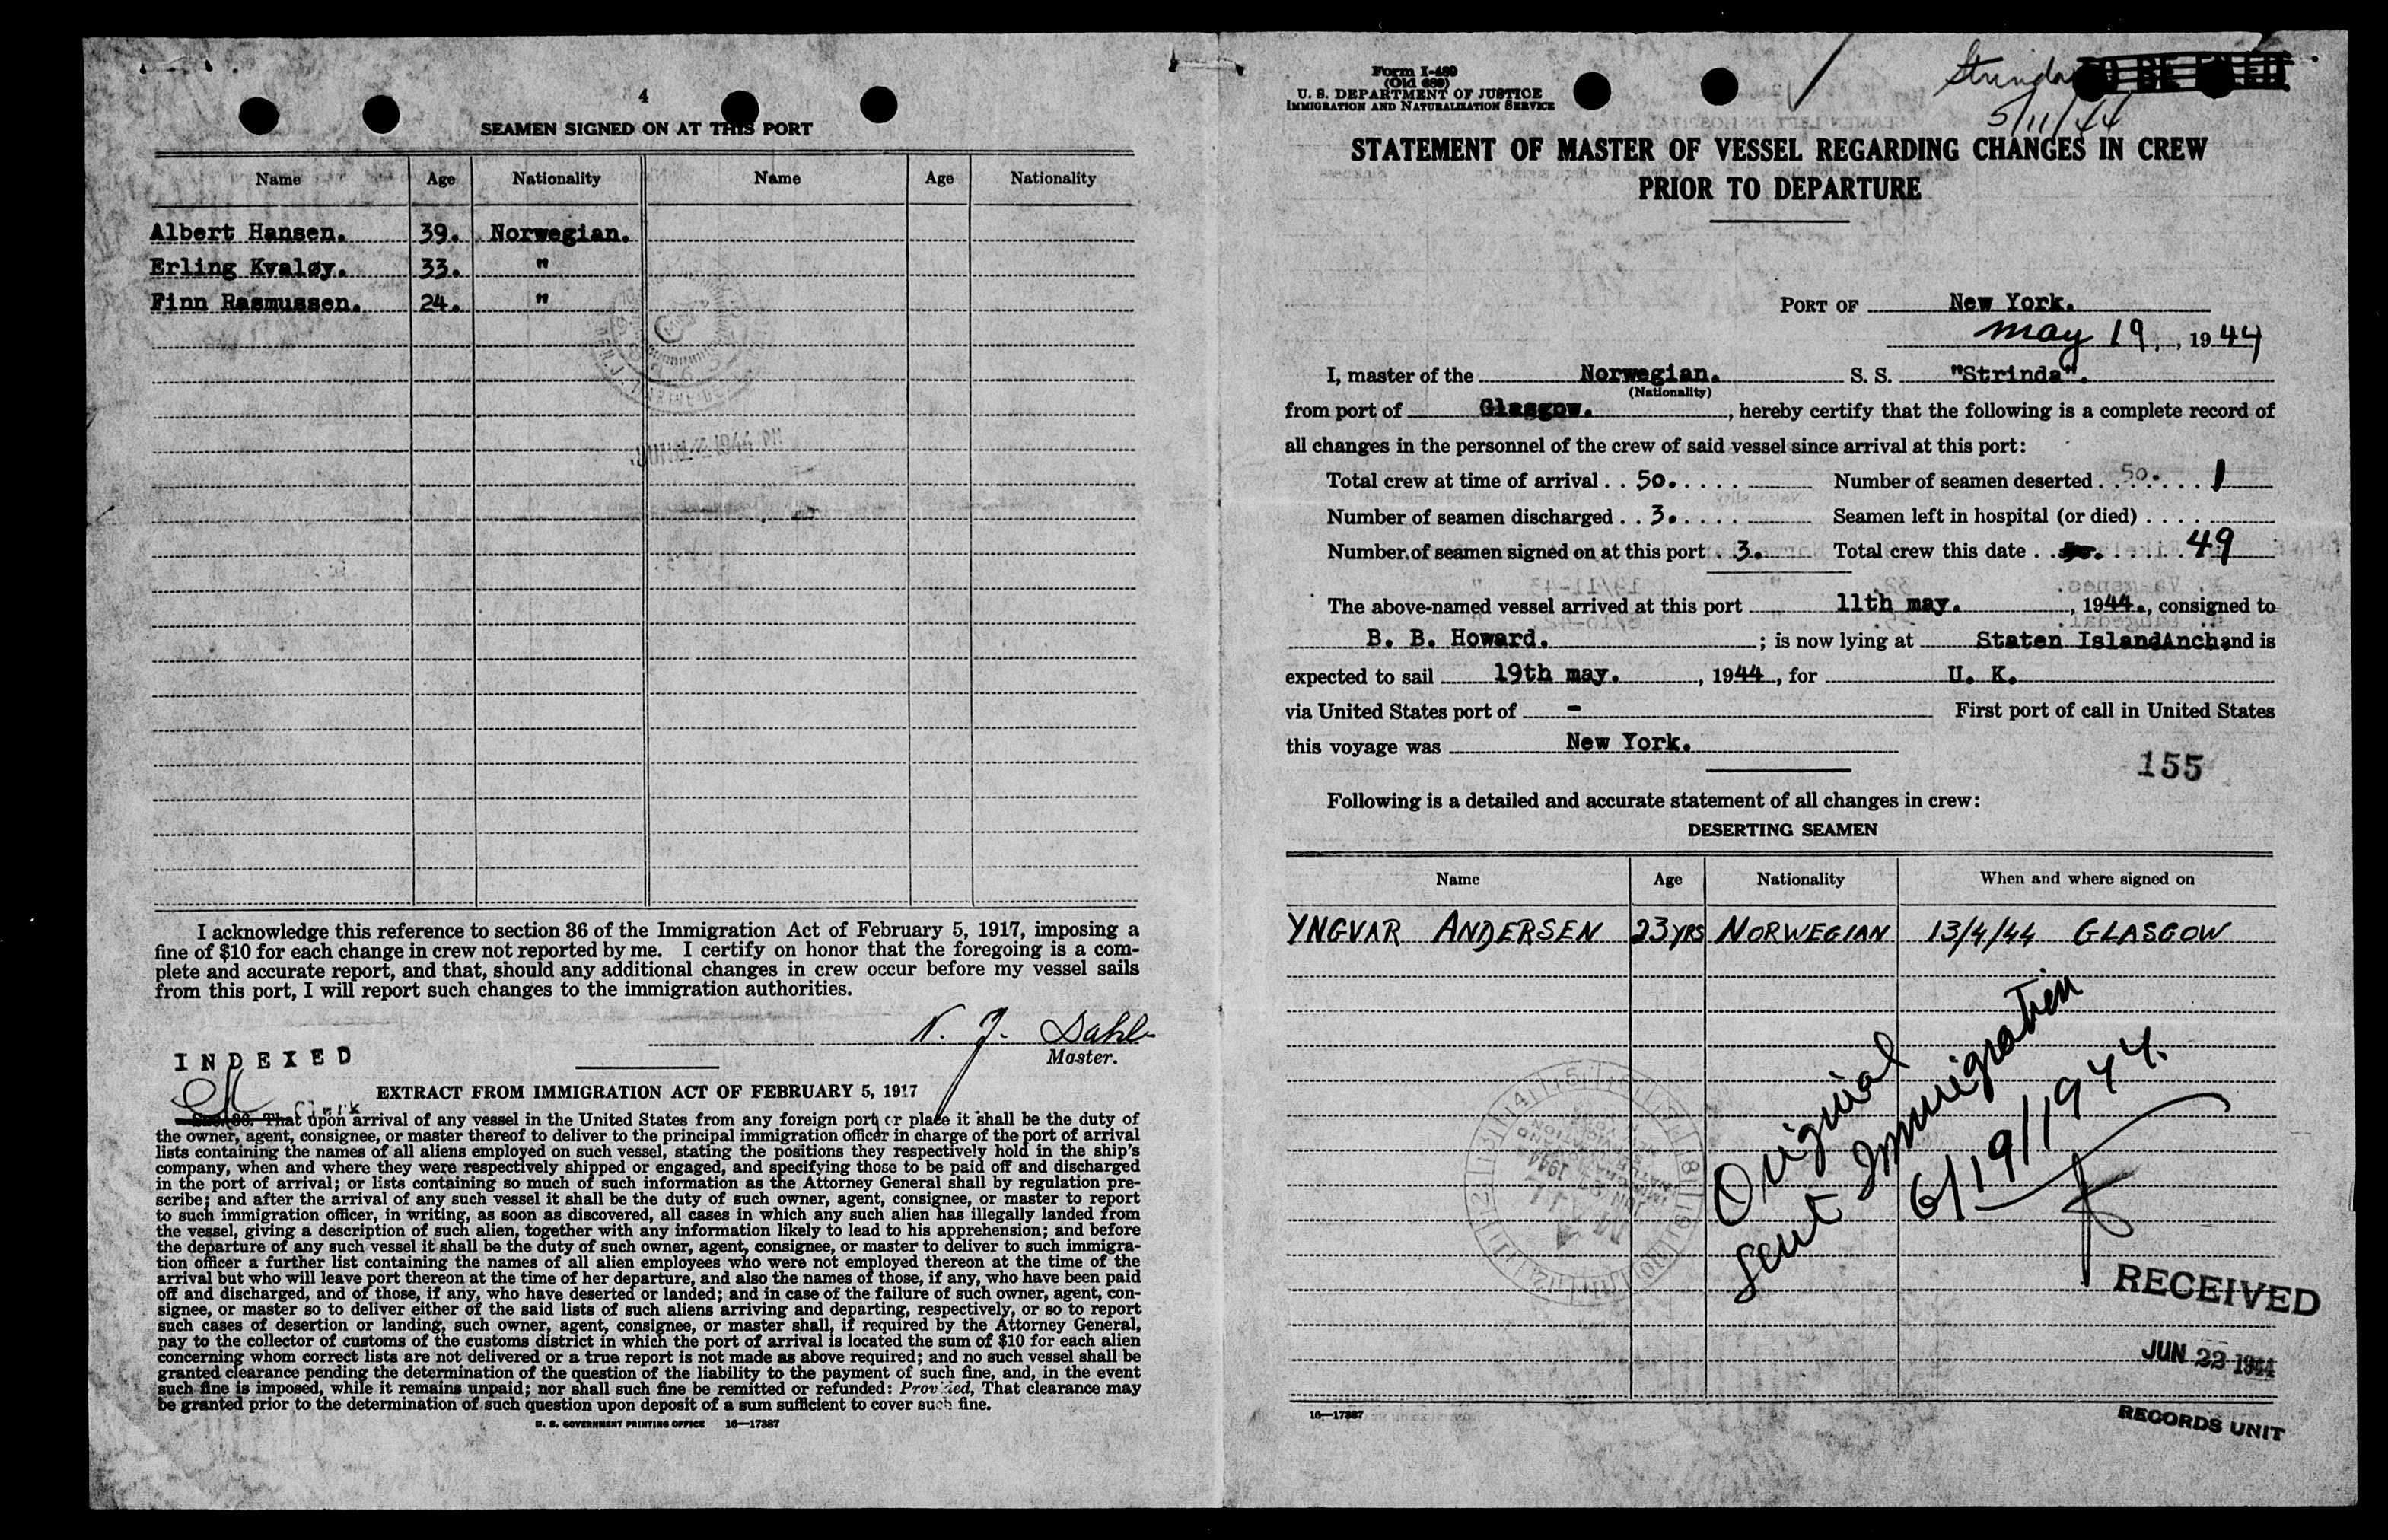 4
SEAMEN SIGNED ON AT THIS PORT
Name Age Nationality Name Age Nationality
Albert Hansen. 39. Norwegian.
Erling Kvaløy. 33. "
Finn Rasmussen. 24. "
I acknowledge this reference to section 36 of the Immigration Act of February 5, 1917, imposing a
fine of $10 for each change in crew not reported by me. I certify on honor that the foregoing is a com-
plete and accurate report, and that, should any additional changes in crew occur before my vessel sails
from this port, I will report such changes to the immigration authorities.
N. J. Dahl
Master.
INDEXED
Clerk
EXTRACT FROM IMMIGRATION ACT OF FEBRUARY 5, 1917
Sec. 36. That upon arrival of any vessel in the United States from any foreign port or place it shall be the duty of
the owner, agent, consignee, or master thereof to deliver to the principal immigration officer in charge of the port of arrival
lists containing the names of all aliens employed on such vessel, stating the positions they respectively hold in the ship's
company, when and where they were respectively shipped or engaged, and specifying those to be paid off and discharged
in the port of arrival; or lists containing so much of such information as the Attorney General shall by regulation pre-
scribe; and after the arrival of any such vessel it shall be the duty of such owner, agent, consignee, or master to report
to such immigration officer, in writing, as soon as discovered, all cases in which any such alien has illegally landed from
the vessel, giving a description of such alien, together with any information likely to lead to his apprehension; and before
the departure of any such vessel it shall be the duty of such owner, agent, consignee, or master to deliver to such immigra-
tion officer a further list containing the names of all alien employees who were not employed thereon at the time of the
arrival but who will leave port thereon at the time of her departure, and also the names of those, if any, who have been paid
off and discharged, and of those, if any, who have deserted or landed; and in case of the failure of such owner, agent, con-
signee, or master so to deliver either of the said lists of such aliens arriving and departing, respectively, or so to report
such cases of desertion or landing, such owner, agent, consignee, or master shall, if required by the Attorney General,
pay to the collector of customs of the customs district in which the port of arrival is located the sum of $10 for each alien
concerning whom correct lists are not delivered or a true report is not made as above required; and no such vessel shall be
granted clearance pending the determination of the question of the liability to the payment of such fine, and, in the event
such fine is imposed, while it remains unpaid; nor shall such fine be remitted or refunded: Provided, That clearance may
be granted prior to the determination of such question upon deposit of a sum sufficient to cover such fine.
U. S. GOVERNMENT PRINTING OFFICE 16—17387
Form I-489
(Old 689)
U. S. DEPARTMENT OF JUSTICE
IMMIGRATION AND NATURALIZATION SERVICE
Strinda TO BE FILED
5/11/44
STATEMENT OF MASTER OF VESSEL REGARDING CHANGES IN CREW
PRIOR TO DEPARTURE
PORT OF New York.
May 19, , 1944
I, master of the Norwegian. S. S. "Strinda".
(Nationality)
from port of Glasgow. , hereby certify that the following is a complete record of
all changes in the personnel of the crew of said vessel since arrival at this port:
Total crew at time of arrival . . 50. . . . . Number of seamen deserted . . 50. . . . 1
Number of seamen discharged . . 3. . . . . Seamen left in hospital (or died) . . . .
Number of seamen signed on at this port . 3. Total crew this date . . 50. . . . . 49
The above-named vessel arrived at this port 11th may. , 1944., consigned to
B. B. Howard. ; is now lying at Staten IslandAnch and is
expected to sail 19th may. , 1944 , for U. K.
via United States port of - First port of call in United States
this voyage was New York.
155
Following is a detailed and accurate statement of all changes in crew:
DESERTING SEAMEN
Name Age Nationality When and where signed on
YNGVAR ANDERSEN 23 YRS NORWEGIAN 13/4/44 GLASGOW
Original
Sent Immigration
6/19/1944.
RECEIVED
JUN 22 1944
RECORDS UNIT
16—17387